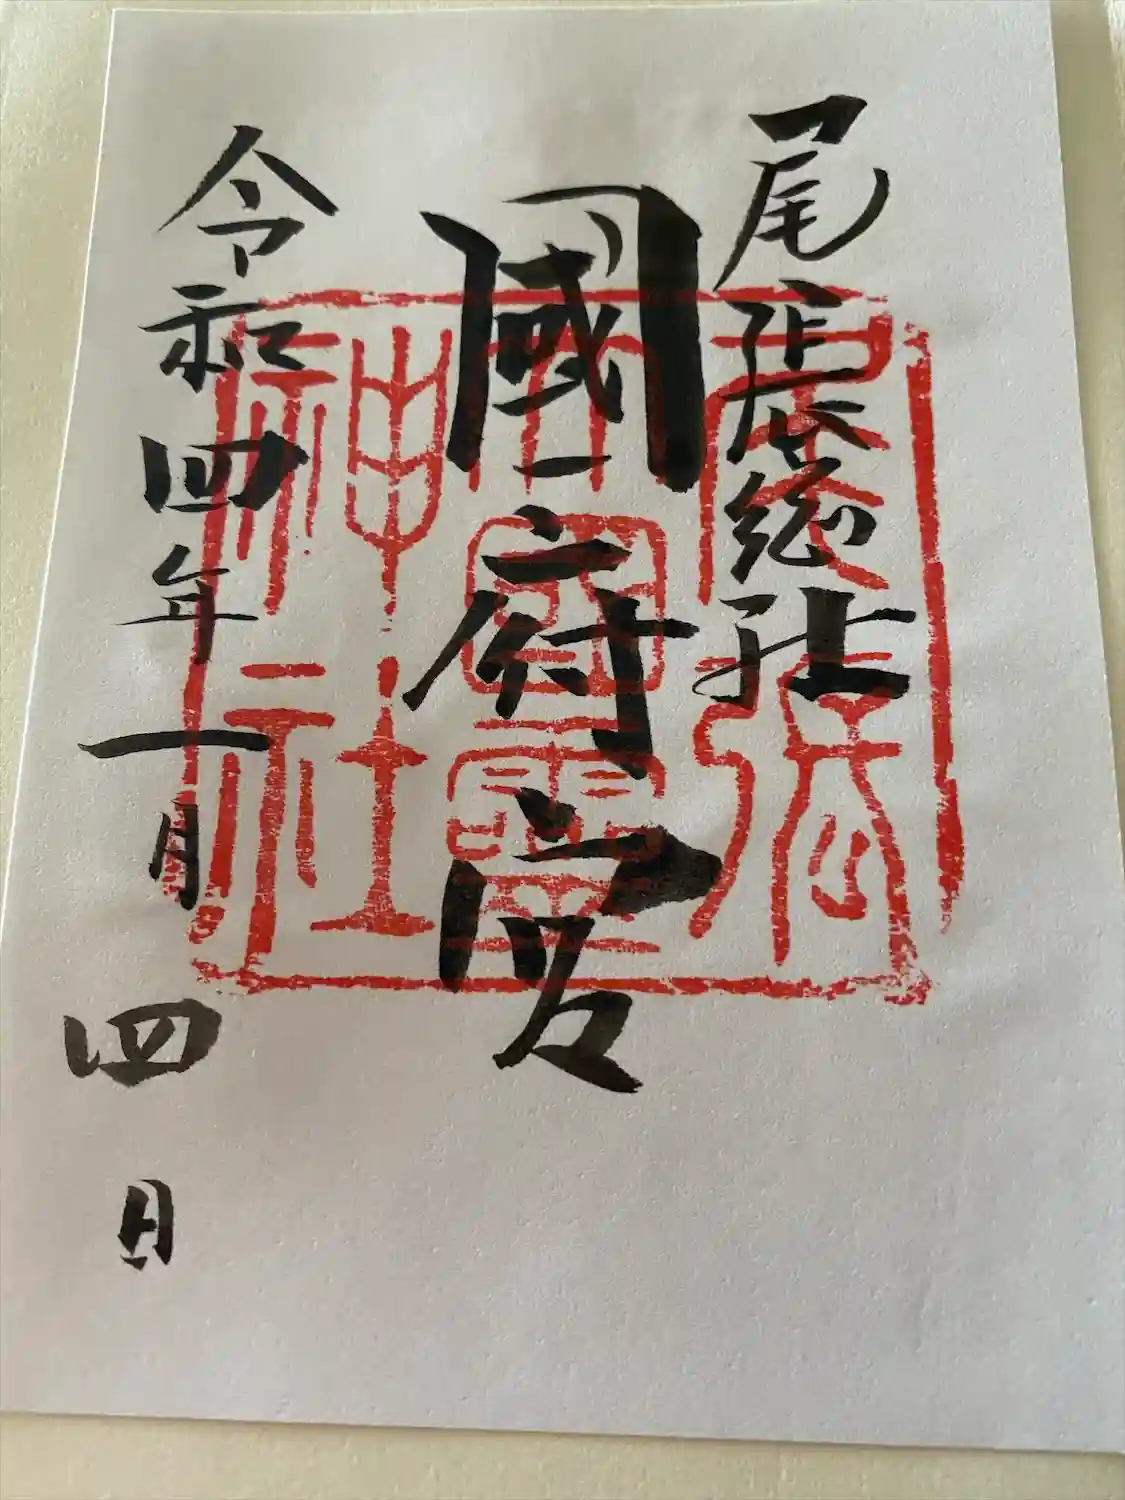 尾張総社
國府宮
令和四年一月四日
尾張
大國霊
神社